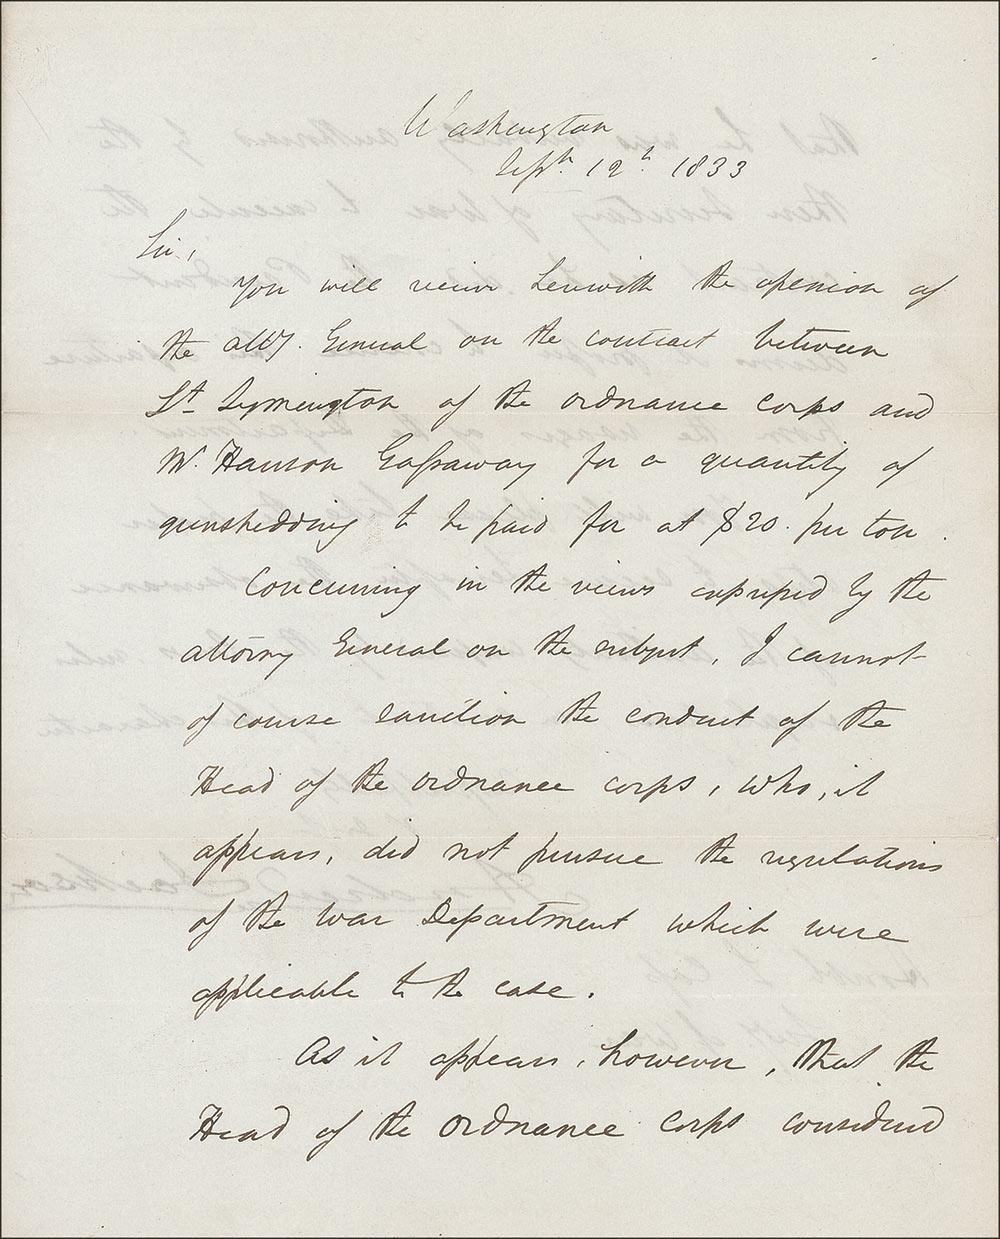 Washington
Sept. 12th 1833
Sir,
You will receive herewith the opinion of
the atty. General on the contract between
Lt Symington of the ordnance corps and
W. Hanson Gassaway for a quantity of
to be paid for at $20. per ton.
Concurring in the views expressed by the
attorney General on the subject, I cannot
of course sanction the conduct of the
Head of the ordnance corps, who, it
appears, did not pursue the regulations
of the War Department which were
applicable to the case.
As it appears, however, that the
Head of the ordnance corps considered